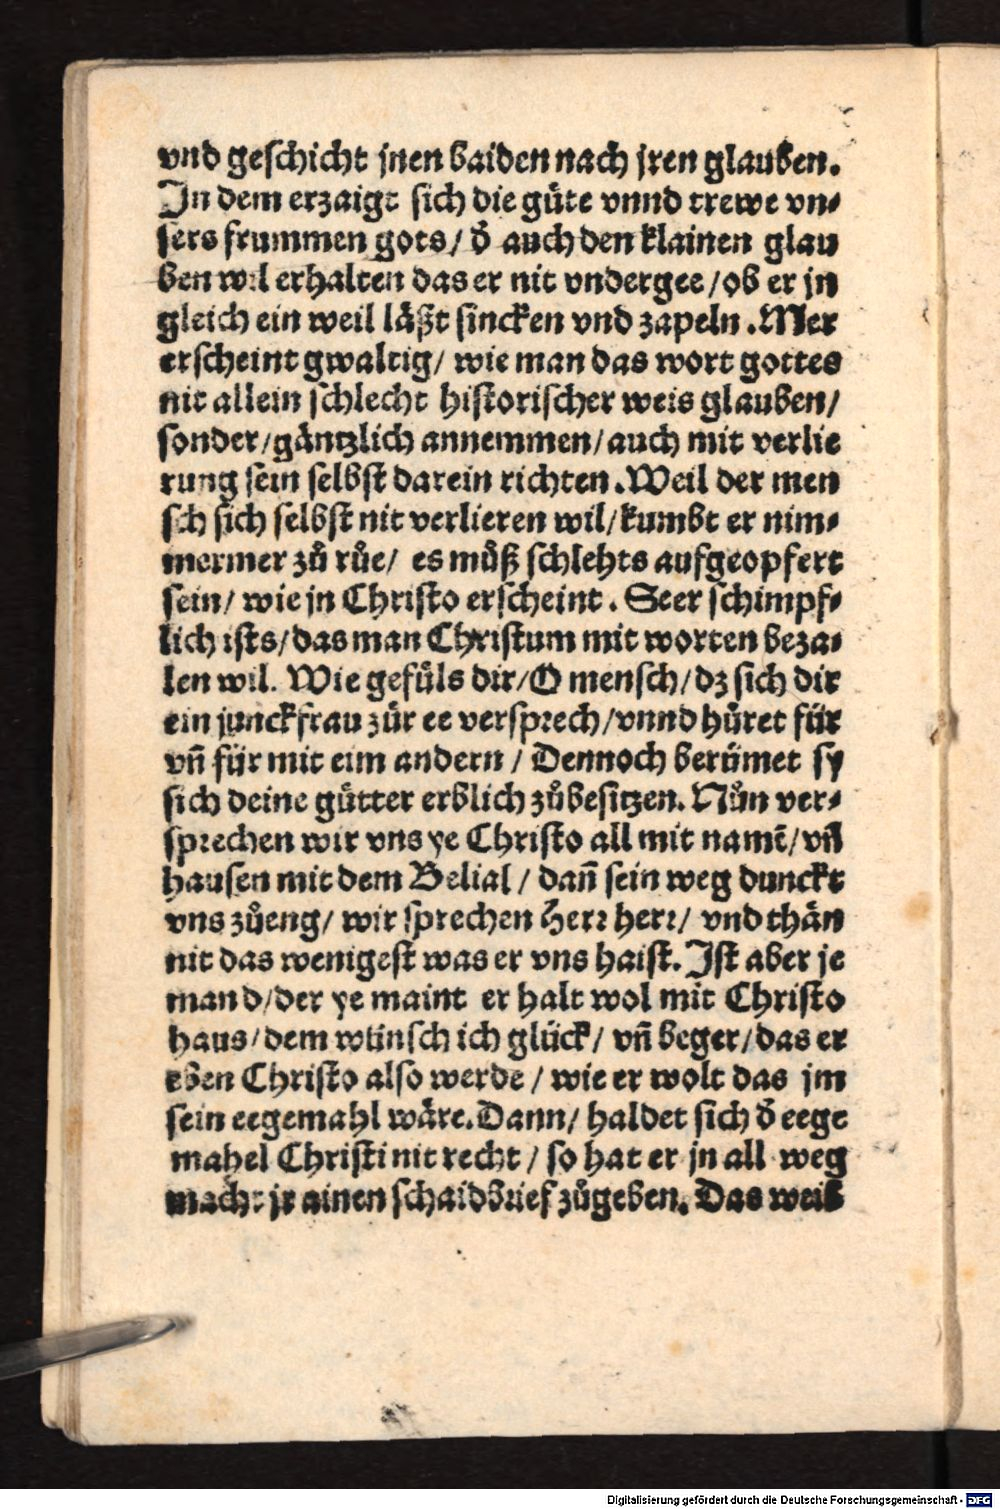 vnd geschicht jnen baiden nach jren glauben.
In dem erzaigt sich die güte vnnd trewe vn⸗
sers frummen gots/ d̕ auch den klainen glau
ben wil erhalten das er nit vndergee/ob er jn
gleich ein weil läßt sincken vnd zapeln. Mer
erscheint gwaltig/ wie man das wort gottes
nit allein schlecht historischer weis glauben/
sonder/gäntzlich annemmen/auch mit verlie
rung sein selbst darein richten. Weil der men
sch sich selbst nit verlieren wil/kumbt er nim⸗
mermer zů růe/ es můß schlehts aufgeopfert
sein/ wie jn Christo erscheint. Seer schimpf⸗
lich ists/das man Christum mit worten beza⸗
len wil. Wie gefüls dir/O mensch/dz sich dir
ein junckfrau zůr ee versprech/vnnd hůret für
vñ für mit eim andern/ Dennoch berümet sy
sich deine gütter erblich zůbesitzen. Nůn ver⸗
sprechen wir vns ye Christo all mit namē/vñ
hausen mit dem Belial/ dañ sein weg dunckt
vns zůeng/ wir sprechen Herr herr/ vnd thän
nit das wenigest was er vns haist. Ist aber je
mand/der ye maint er halt wol mit Christo
haus/dem wünsch ich glück/ vñ beger/das er
eben Christo also werde/ wie er wolt das jm
sein eegemahl wäre. Dann/ haldet sich d̕ eege
mahel Christi nit recht/ so hat er jn all weg
macht jr ainen schaidbrief zůgeben. Das weib
Digitalisierung gefördert durch die Deutsche Forschungsgemeinschaft - DFG